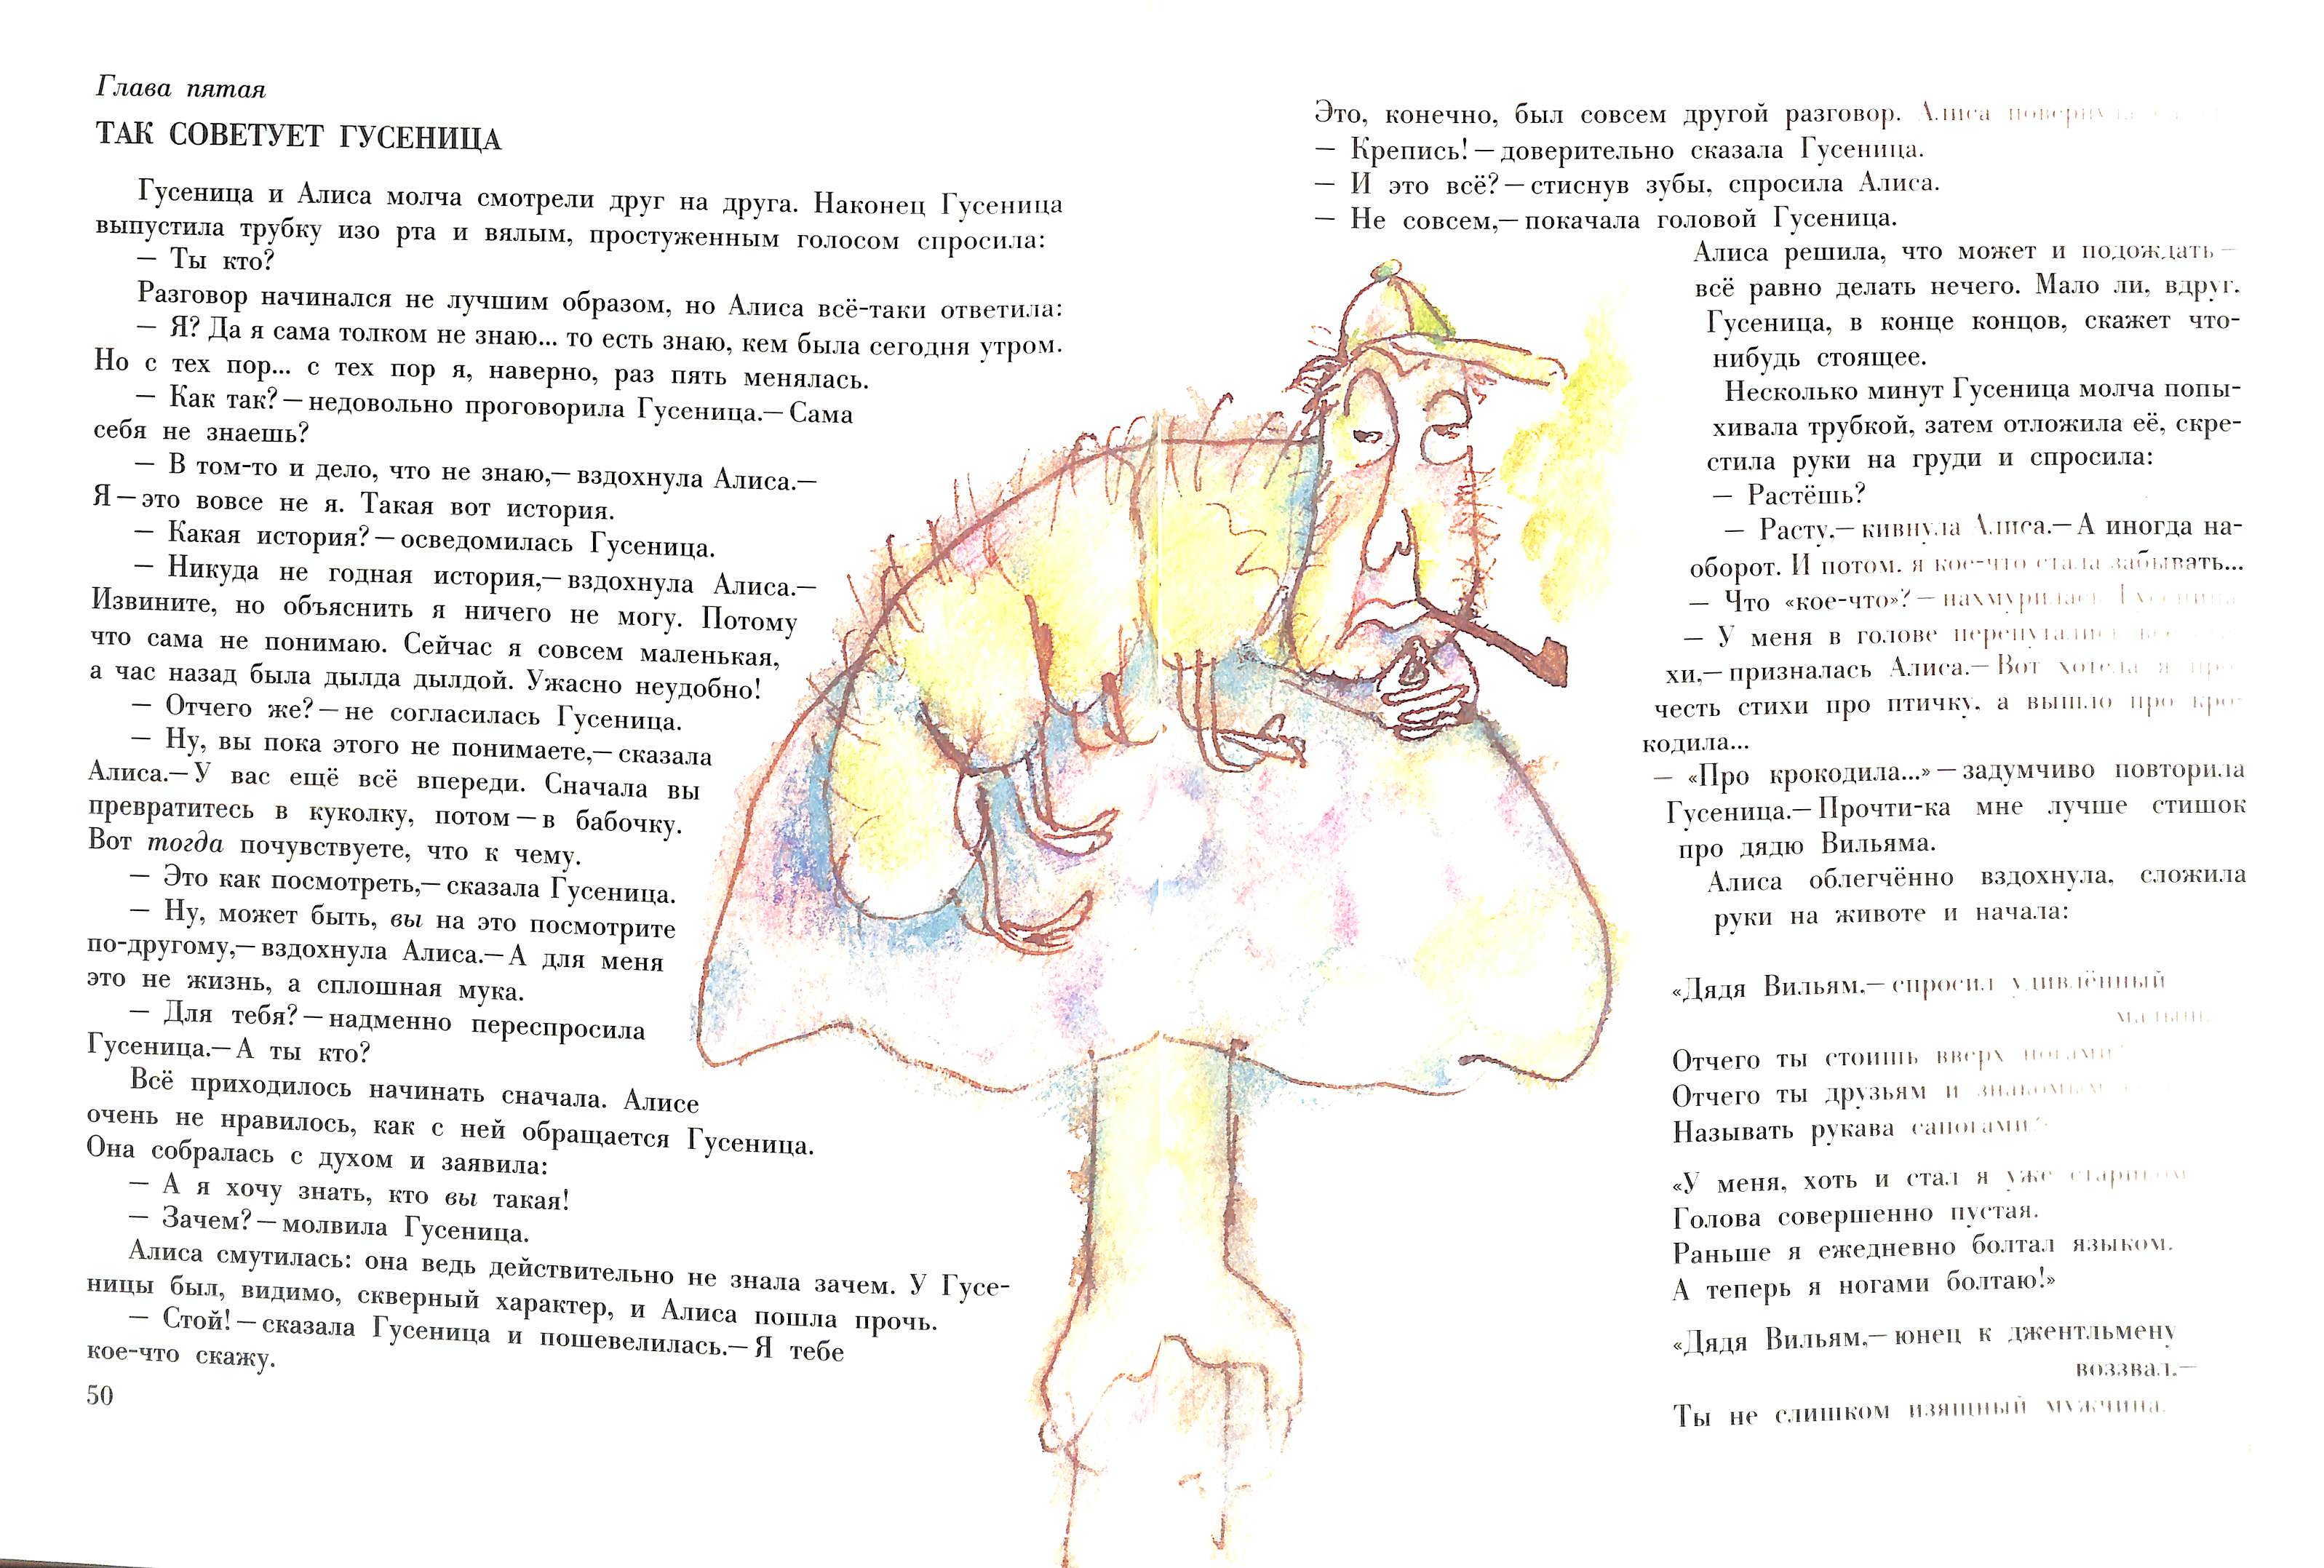 Глава пятая
ТАК СОВЕТУЕТ ГУСЕНИЦА
Гусеница и Алиса молча смотрели друг на друга. Наконец Гусеница
выпустила трубку изо рта и вялым, простуженным голосом спросила:
— Ты кто?
Разговор начинался не лучшим образом, но Алиса всё-таки ответила:
— Я? Да я сама толком не знаю... то есть знаю, кем была сегодня утром.
Но с тех пор... с тех пор я, наверно, раз пять менялась.
— Как так?—недовольно проговорила Гусеница.—Сама
себя не знаешь?
— В том-то и дело, что не знаю,—вздохнула Алиса.—
Я—это вовсе не я. Такая вот история.
— Какая история?—осведомилась Гусеница.
— Никуда не годная история,—вздохнула Алиса.—
Извините, но объяснить я ничего не могу. Потому
что сама не понимаю. Сейчас я совсем маленькая,
а час назад была дылда дылдой. Ужасно неудобно!
— Отчего же?—не согласилась Гусеница.
— Ну, вы пока этого не понимаете,—сказала
Алиса.—У вас ещё всё впереди. Сначала вы
превратитесь в куколку, потом—в бабочку.
Вот тогда почувствуете, что к чему.
— Это как посмотреть,—сказала Гусеница.
— Ну, может быть, вы на это посмотрите
по-другому,—вздохнула Алиса.—А для меня
это не жизнь, а сплошная мука.
— Для тебя?—надменно переспросила
Гусеница.—А ты кто?
Всё приходилось начинать сначала. Алисе
очень не нравилось, как с ней обращается Гусеница.
Она собралась с духом и заявила:
— А я хочу знать, кто вы такая!
— Зачем?—молвила Гусеница.
Алиса смутилась: она ведь действительно не знала зачем. У Гусе-
ницы был, видимо, скверный характер, и Алиса пошла прочь.
— Стой!—сказала Гусеница и пошевелилась.—Я тебе
кое-что скажу.
50
Это, конечно, был совсем другой разговор. Алиса
— Крепись!—доверительно сказала Гусеница.
— И это всё?—стиснув зубы, спросила Алиса.
— Не совсем,—покачала головой Гусеница.
Алиса решила, что может и подождать—
всё равно делать нечего. Мало ли, вдруг,
Гусеница, в конце концов, скажет что-
нибудь стоящее.
Несколько минут Гусеница молча попы-
хивала трубкой, затем отложила её, скре-
стила руки на груди и спросила:
— Растёшь?
— Расту,—кивнула Алиса.—А иногда на-
оборот. И потом, я кое-что стала забывать...
— Что «кое-что»?—нахмурилась Гусеница.
— У меня в голове перепутались
хи,—призналась Алиса.—Вот хотела я про-
честь стихи про птичку, а вышло про кро-
кодила...
— «Про крокодила...»—задумчиво повторила
Гусеница.—Прочти-ка мне лучше стишок
про дядю Вильяма.
Алиса облегчённо вздохнула, сложила
руки на животе и начала:
«Дядя Вильям,—спросил удивлённый
малыш,
Отчего ты стоишь вверх ногами?
Отчего ты друзьям и знакомым
Называть рукава сапогами?
«У меня, хоть и стал я уже стариком
Голова совершенно пустая.
Раньше я ежедневно болтал языком,
А теперь я ногами болтаю!»
«Дядя Вильям,—юнец к джентльмену
воззвал,—
Ты не слишком изящный мужчина.